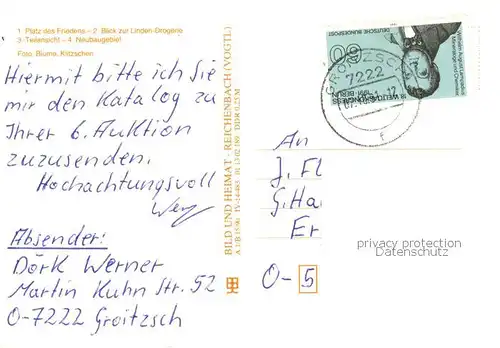 1 Platz des Friedens – 2 Blick zur Linden-Drogerie
3 Teilansicht – 4 Neubaugebiet
Foto: Blume, Kitzschen
Hiermit bitte ich Sie
mir den Katalog zu
Ihrer 6. Auktion
zuzusenden.
Hochachtungsvoll
Absender:
Dörk Werner
Martin Kuhn Str. 52
O-7222 Groitzsch
BILD UND HEIMAT · REICHENBACH (VOGTL)
DEUTSCHE BUNDESPOST
60
BERLIN
GROITZSCH
7222
An
J. Fl
G. Ha
Er
O-5
privacy protection
Datenschutz